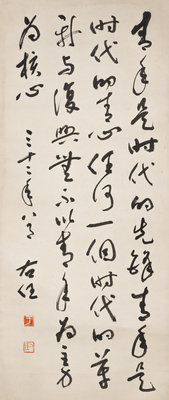 青年是時代的先鋒青年是
時代的重心任何一個時代的革
新與復興無不以青年為主力
為核心
右任